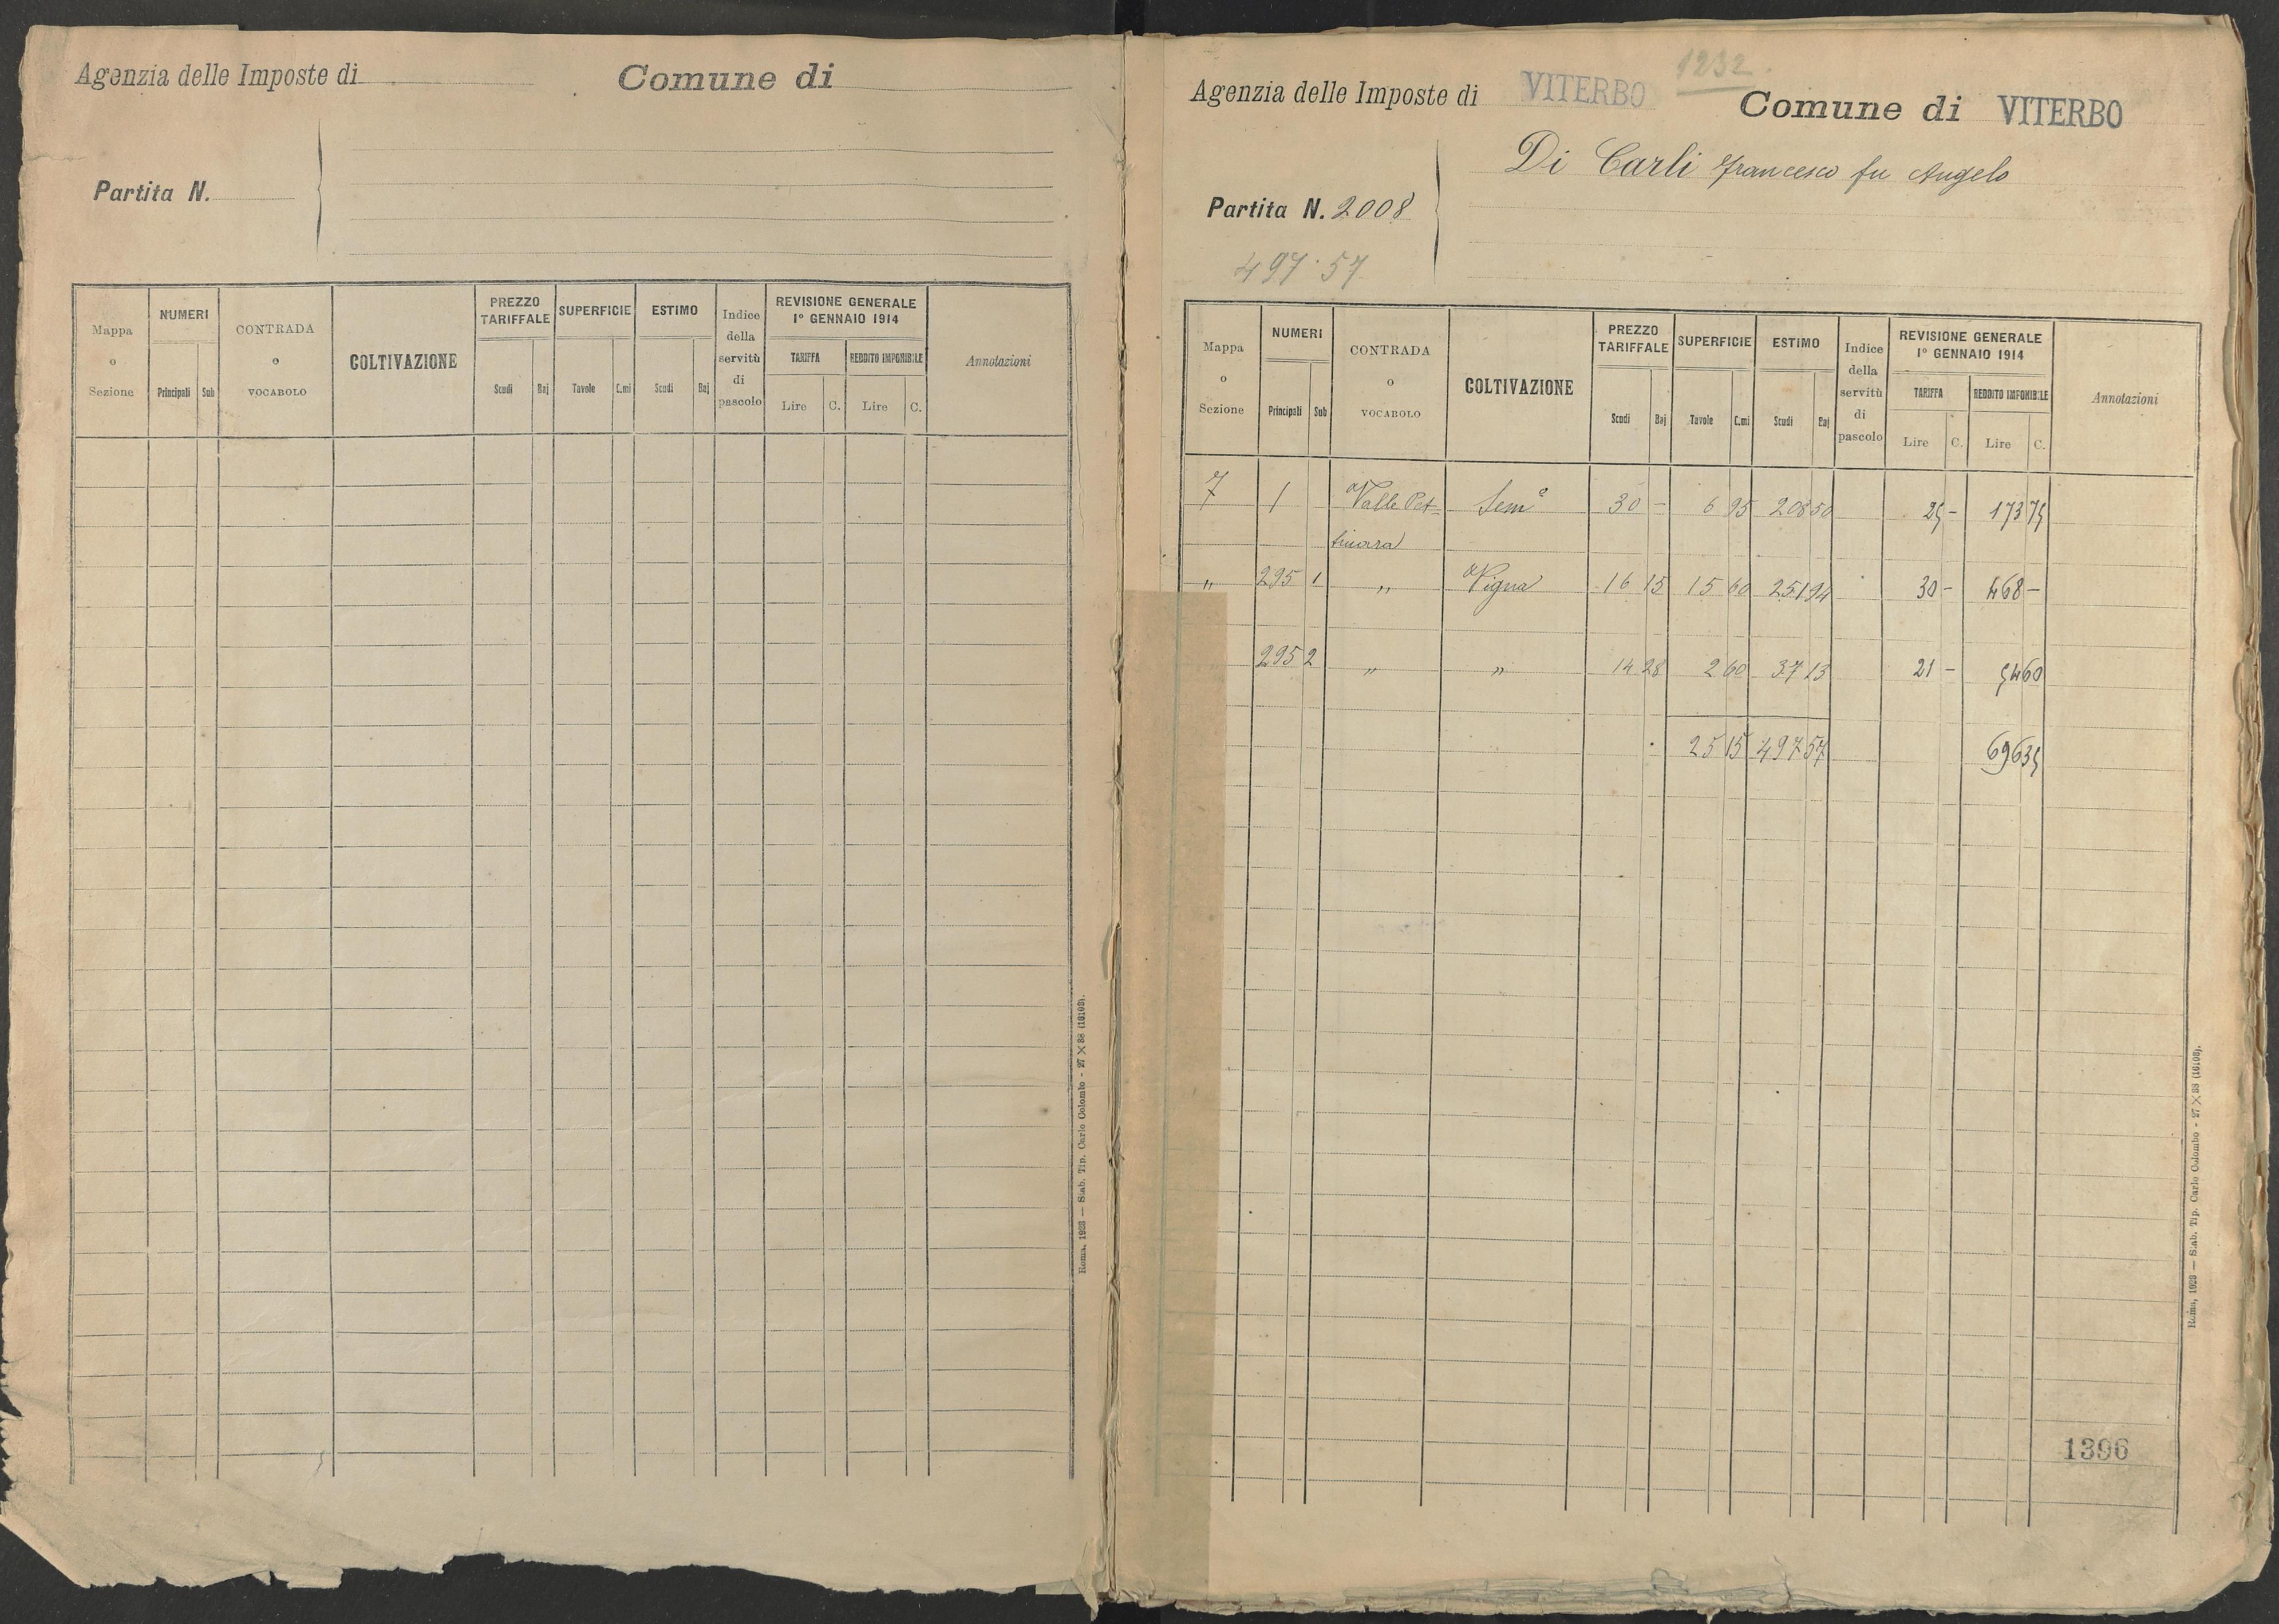 Agenzia delle Imposte di
Comune di
Partita N.
Mappa o Sezione
NUMERI
Principali Sub
CONTRADA o VOCABOLO
COLTIVAZIONE
PREZZO TARIFFALE
Scudi Baj
SUPERFICIE
Tavole C.mi
ESTIMO
Scudi Baj
Indice della servitù di pascolo
REVISIONE GENERALE
1° GENNAIO 1914
TARIFFA
Lire C.
REDDITO IMPONIBILE
Lire C.
Annotazioni
Roma, 1923 — Stab. Tip. Carlo Colombo - 27 X 38 (10108).
1232.
Agenzia delle Imposte di VITERBO
Comune di VITERBO
Di Carli Francesco fu Angelo
Partita N. 2008
497.57
Mappa o Sezione
NUMERI
Principali Sub
CONTRADA o VOCABOLO
COLTIVAZIONE
PREZZO TARIFFALE
Scudi Baj
SUPERFICIE
Tavole C.mi
ESTIMO
Scudi Baj
Indice della servitù di pascolo
REVISIONE GENERALE
1° GENNAIO 1914
TARIFFA
Lire C.
REDDITO IMPONIBILE
Lire C.
Annotazioni
7 1 Valle Pet= Sem° 30 - 6 95 208 50 25 - 173 75
tinara
" 295 1 " Vigna 16 15 15 60 251 94 30 - 468 -
295 2 " " 14 28 2 60 37 13 21 - 54 60
25 15 497 57 696 35
Roma, 1923 — Stab. Tip. Carlo Colombo - 27 X 38 (10108).
1396